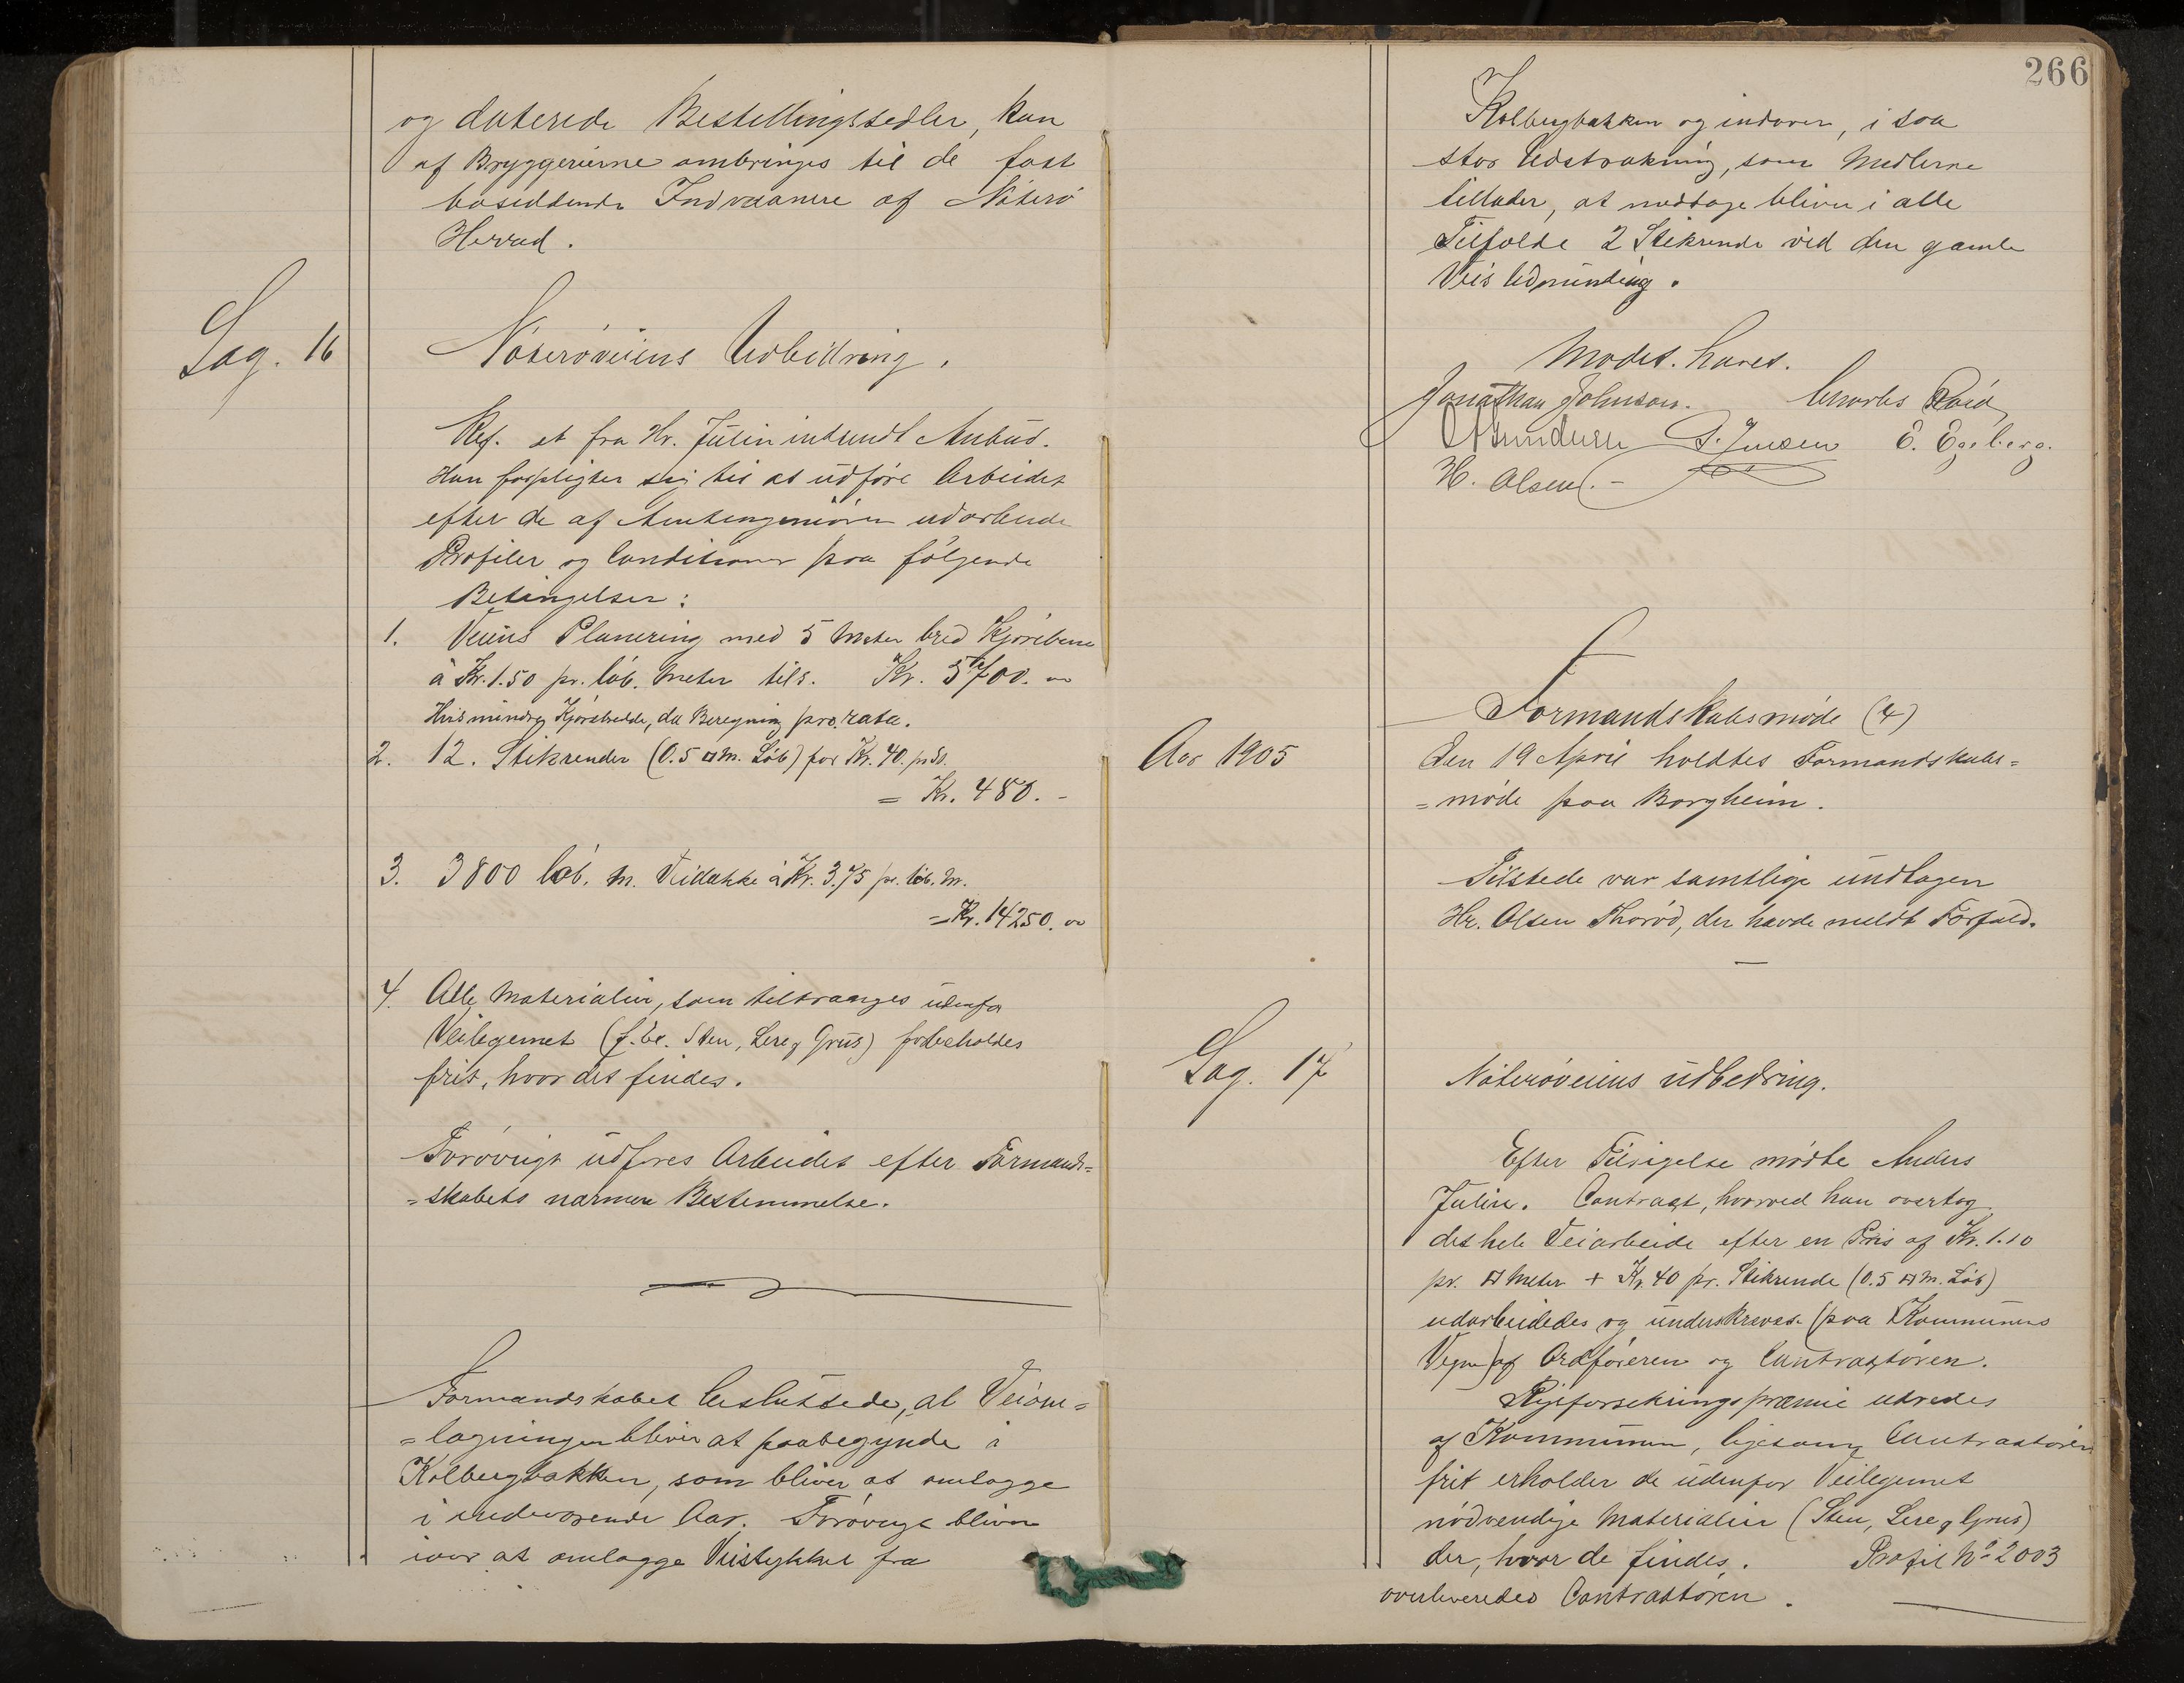 og daterede Bestellingssedler, kan
af Bryggerierne ombringes til de fast
bosiddende Indvaanere af Nøterø
Herred.
Sag. 16
Nøterøveiens Udbedring.
Ref. et fra Hr. Julin indsendt Anbud.
Han forpligter sig til at udføre Arbeidet
efter de af Amtsingeniøren udarbeide
Profiler og Conditioner paa følgende
Betingelser:
1. Veiens Planering med 5 Meter bred Kjørebane
à Kr. 1.50 pr. løb. Meter tils. Kr. 5700.
Hvis mindre Kjørebredde, da Beregning pro rata.
2. 12. Stikrender (0.5 □ M. Løb) for Kr. 40. pr St.
= Kr. 480. -
3. 3800 løb. M. Veidække à Kr. 3.75 pr. løb. M.
= Kr. 14250.
4. Alle Materialier, som tiltrænges udenfor
Veilegemet (f. Ex. Sten, Lere, Grus) forbeholdes
frit, hvor det findes.
Forøvrigt udføres Arbeidet efter Formand-
=skabets nærmere Bestemmelse.
Formandskabet besluttede, at Veiom=
=lægningen bliver at paabegynde i
Kolbergbakken, som bliver at omlægge
i indeværende Aar. Forøvrigt bliver
iaar at omlægge Veistykket fra
266
Kolbergbakken og indover, i saa
stor Udstrækning, som Midlerne
tillader, at medtage bliver i alle
Tilfælde 2 Stikrende ved den gamle
Veis Udmunding.
Mødet hævet.
Jonathan Johnson. Charles Røed
Amundsen S. Jensen E. Egeberg.
H. Olsen. -
Formandskabsmøde (4)
Aar 1905
Den 19 April holdtes Formandskabs=
=møde paa Borgheim.
Tilstede var samtlige undtagen
Hr. Olsen Thorød, der havde meldt Forfald.
Sag. 17
Nøterøveiens udbedring.
Efter Tilsigelse mødte Anders
Julin. Contragt, hvorved han overtog
det hele Veiarbeide efter en Pris af Kr. 1.10
pr. □ Meter + Kr. 40 pr. Stikrende (0.5 □ M. Løb)
udarbeidedes og underskreves (paa Kommunens
Vegne) af Ordføreren og Contragtøren.
præmie udredes
af Kommunen, ligesom Contraktøren
frit erholder de udenfor Veilegemet
nødvendige Materialier (Sten, Lere, Grus)
der, hvor de findes. Profil No 2003
overleveredes Contraktøren.